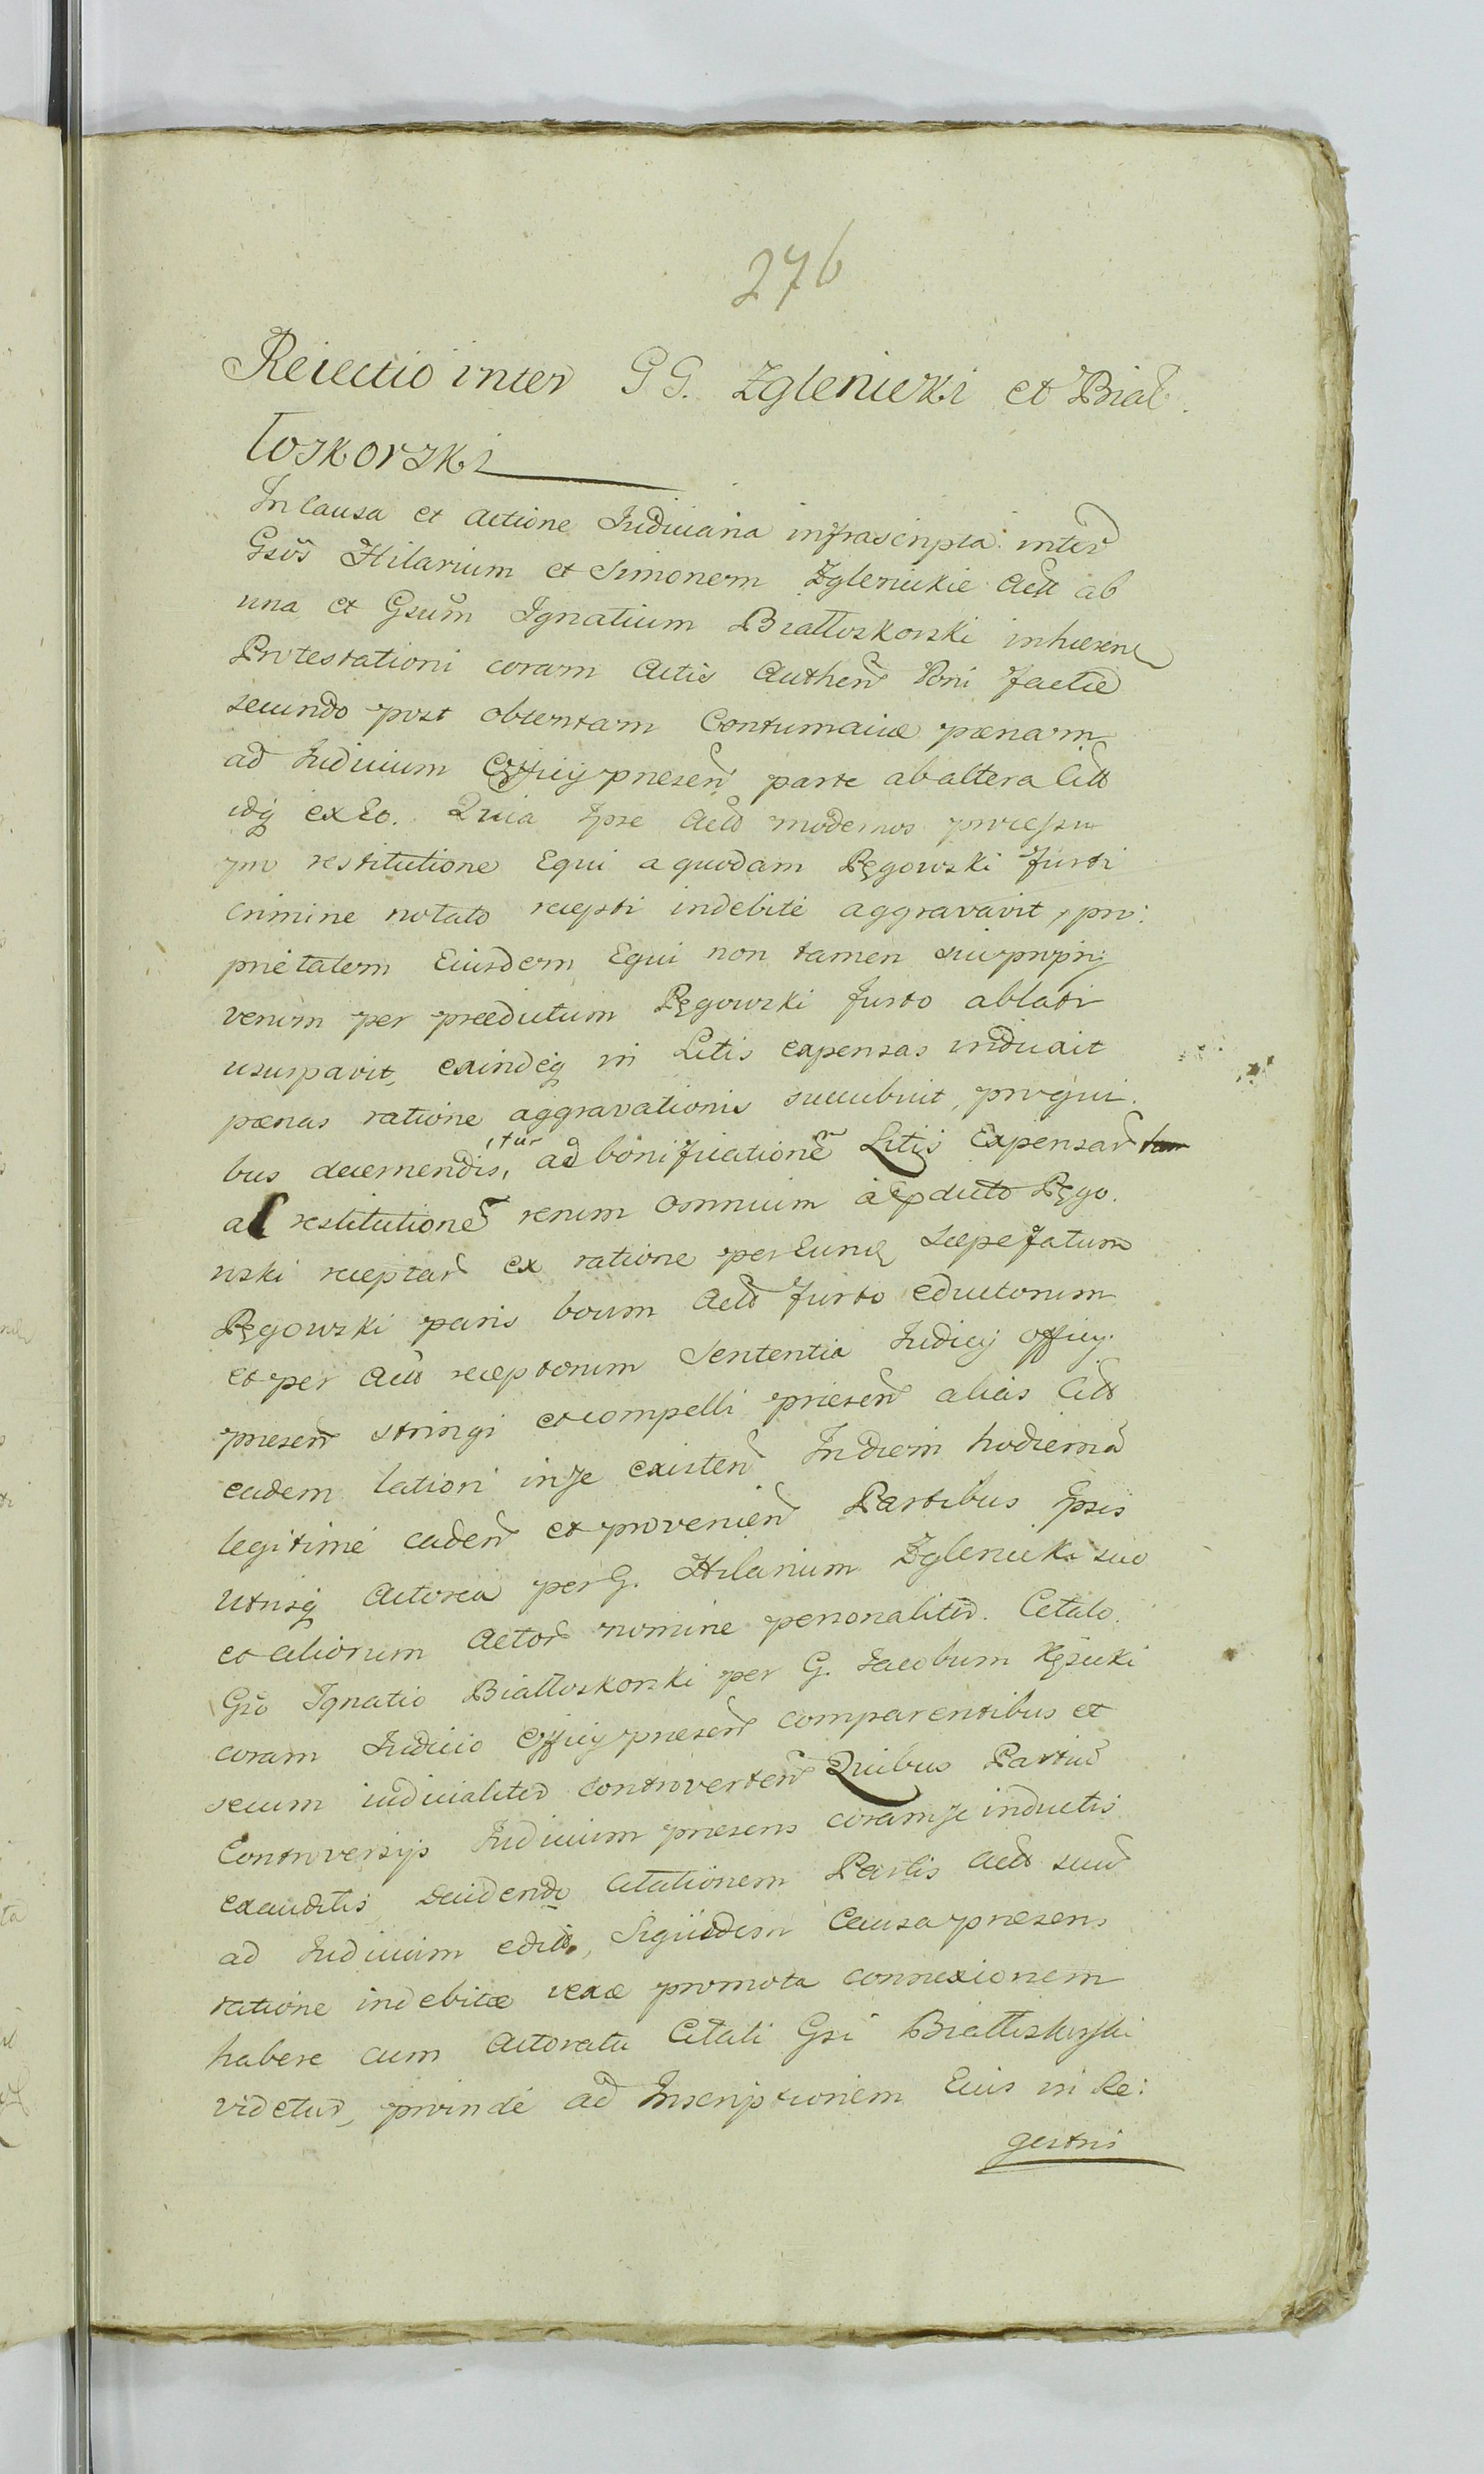 276
Reiectio inter G G. Zglenicki et Biał
łoskorski
In Causa et Actione Judiciaria infrascripta inter
Gsos Hilarium et Simonem Zglenickie Actt ab
una et Gsum Ignatium Białłoskorski inhaeren
Protestationi coram Actis Authen Poni factae
secundo post obtentam Contumaciae paenam
ad Judicium Officij praesen parte ab altera Citt
idq ex Eo. Quia Ipse Actt modernos processu
pro restitutione Equi a quodam Pęgowski furti
crimine notato recepti indebitè aggravavit, pro:
prietatem Eiusdem Equi non tamen sui proprij
verum per praedictum Pęgowski furto ablati
usurpavit, exindeq in Litis expensas induxit
paenas ratione aggravationis succubuit, pro qui.
bus decernendis, itur ad bonificatione Litis Expensar
ac restitutione rerum omnium à pdicto Pęgo.
wski receptar ex ratione per Eund Saepefatum
Pęgowski paris boum Actt furto eductorum
et per Citt receptorum Sententia Judicij Officij
praesen stringi et compelli praesen alias Citt
eadem latiori in se existen In diem hodierna
legitimè caden et provenien Partibus Ipsis
utrisq Actorea per G. Hilarium Zglenicki suo
et aliorum Actor nomine personaliter. Citato
Gso Ignatio Białłoskorski per G. Jacobum Kęsicki
coram Judicio Officij praesen comparentibus et
secum iudicialiter controverten Quibus Partiu
Controversijs Judicium praesens coram se inductis
exauditis, decidendo Citationem Partis Actt suu
ad Judicium edit, Siquidem Causa praesens
ratione indebitae vexae promota connexionem
habere cum Actoratu Citati Gsi Białłoskorski
videtur, proindè ad Inscriptionem Eius in Re:
gestris